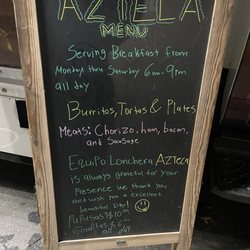 AZTECA
MENU
Serving Breakfast from
Monday thru Saturday 6am-9pm
all day
Burritos, Tortas & Plates
Meats: Chorizo, ham, bacon,
and Sausage
Equipo Lonchera AZTECA
is always grateful for your
Presence we thank you
and wish you a excellent
beautiful Day!
Pupusas 3$10
Gorditas